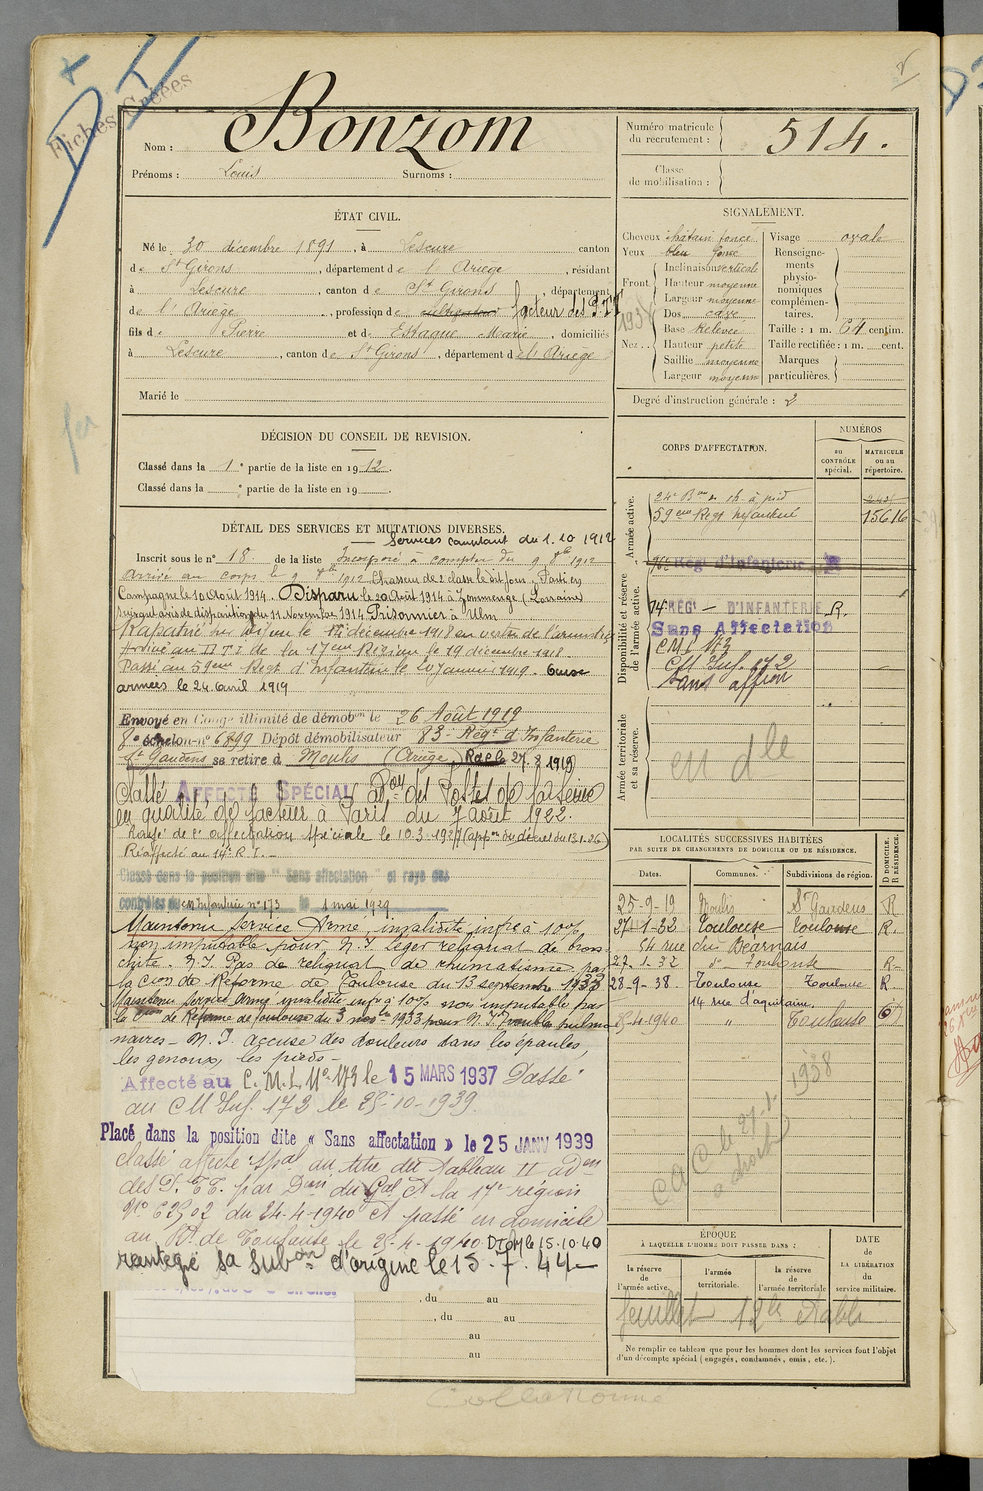 Fiches Créées
DI
Nom : Bonzom
Prénoms : Louis Surnoms :
Numéro matricule du recrutement : 514.
Classe de mobilisation :
ÉTAT CIVIL.
Né le 30 décembre 1891, à Lescure canton
de St Girons, département de l'Ariège, résidant
à Lescure, canton de St Girons, département
de l'Ariège, profession de cultivateur facteur des P.T.T
fils de Pierre et de Estaque Marie, domiciliés
à Lescure, canton de St Girons, département de l'Ariège
Marié le
SIGNALEMENT.
Cheveux châtain foncé
Yeux bleu foncé
Front Inclinaison verticale
Hauteur moyenne
Largeur moyenne
Nez Dos cave
Base Relevée
Hauteur petite
Saillie moyenne
Largeur moyenne
Visage ovale
Renseignements physionomiques complémentaires.
Taille : 1 m. 64 centim.
Taille rectifiée : 1 m. cent.
Marques particulières.
Degré d'instruction générale : 2
DÉCISION DU CONSEIL DE REVISION.
Classé dans la 1e partie de la liste en 1912.
Classé dans la e partie de la liste en 19
DÉTAIL DES SERVICES ET MUTATIONS DIVERSES.
Services comptant du 1.10 1912
Inscrit sous le n° 18 de la liste Incorporé à compter du 9 8bre 1912
Arrivé au corps le 9 8bre 1912 Chasseur de 2 classe le dit jour. Parti en
Campagne le 10 Août 1914. Disparu le 20 Août 1914 à Zommenge (Lorraine)
suivant avis de disparition du 11 Novembre 1914 Prisonnier à Ulm
Rapatrié par Dijon le décembre 1918 en vertu de l'armistice
Arrivé au D T I de la 17eme Région le 19 décembre 1918
Passé au 59eme Régt d'Infanterie le 20 janvier 1919.
armées le 24 avril 1919
Envoyé en Congé illimité de démobon le 26 Août 1919
8e échelon n° 6899 Dépôt démobilisateur 83e Régt d'Infanterie
St Gaudens se retire à Moulis (Ariège) Rac le 27.8.1919
Classé AFFECTÉ SPÉCIAL Adon des Postes de la Seine
en qualité de facteur à Paris du 7 août 1922.
Rayé de l'affectation spéciale le 10.3.1927 (appon du décret du 13.1.26)
Réaffecté au 14e R.I.
Classé dans la position dite "Sans affectation" et rayé des
contrôles du CM Infanterie n° 173 le 1 mai 1929
Maintenu Service Armé, invalidité infre à 10%
non imputable pour N.I. Léger reliquat de bronchite. N.I. Pas de reliquat de rhumatisme par
la Cion de Réforme de Toulouse du 13 septembre 1932
Maintenu Service Armé invalidité infre à 10% non imputable par
la Con de Réforme de Toulouse du 3 nov 1933 pour N.I. Troubles pulmonaires – N.I. accuse des douleurs dans les épaules,
les genoux, les pieds –
Affecté au C.M.I. N° 173 le 15 MARS 1937 Passé
au CM Inf. 172 le 25-10-1939.
Placé dans la position dite « Sans affectation » le 25 JANV 1939
classé affecté spal au titre du tableau II adon
des P.T.T. par Don du Gal Ct la 17e région
N° 62502 du 24-4-1940 et passé en domicile
au Bau de Toulouse le 25-4-1940. le 15.10.40
réintégré sa subon d'origine le 15.7.44
, du au
, du au
au
au
CORPS D'AFFECTATION.
NUMÉROS
au CONTRÔLE spécial.
MATRICULE ou au répertoire.
Armée active.
24e Bon de ch. à pied
59eme Régt Infanterie 15616
Disponibilité et réserve de l'armée active.
Régt d'Infanterie
14e RÉGt – D'INFANTERIE R.
Sans Affectation
CMI 173
CM Inf. 172
Sans affion
Armée territoriale et sa réserve.
en dle
LOCALITÉS SUCCESSIVES HABITÉES
PAR SUITE DE CHANGEMENTS DE DOMICILE OU DE RÉSIDENCE.
Dates. Communes. Subdivisions de région. D DOMICILE. R RÉSIDENCE.
25-9-19 Moulis St Gaudens R
27-1-32 Toulouse Toulouse R.
54 rue du Béarnais
22.1.32 do Toulouse R.
28-9-38. Toulouse Toulouse R
14 rue d'aquitaine.
25-4-1940 " Toulouse
CAC le 21-1-1938
a droit
ÉPOQUE
À LAQUELLE L'HOMME DOIT PASSER DANS :
la réserve de l'armée active.
l'armée territoriale.
la réserve de l'armée territoriale
DATE DE LA LIBÉRATION du service militaire.
feuillet établi
Ne remplir ce tableau que pour les hommes dont les services font l'objet
d'un décompte spécial (engagés, condamnés, omis, etc.).
Collationné